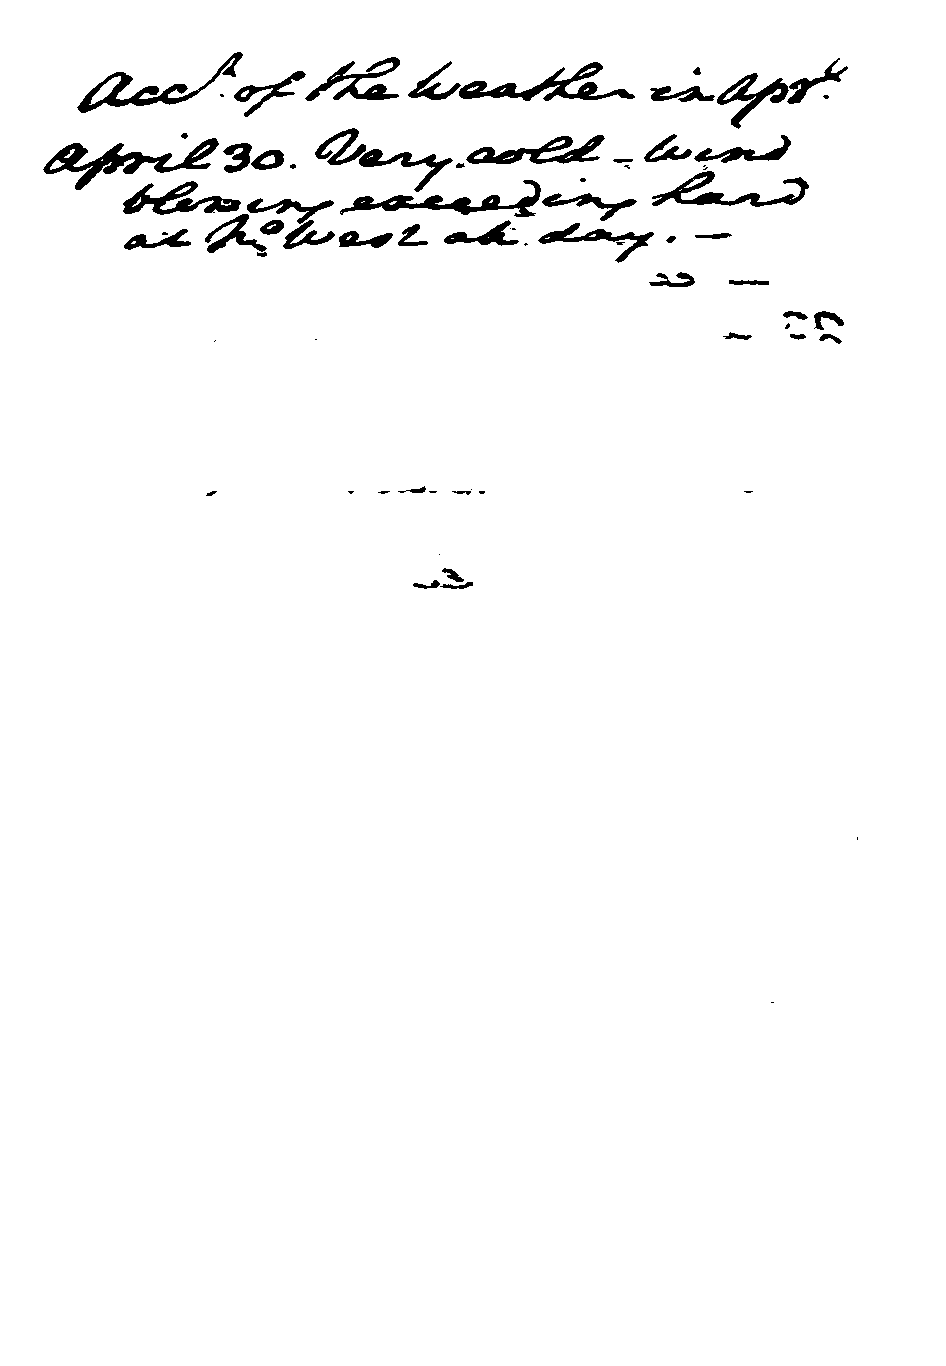 Acct. of the Weather in Aprl.
April 30. Very cold - wind
blowing exceeding hard
at No. West all day. —